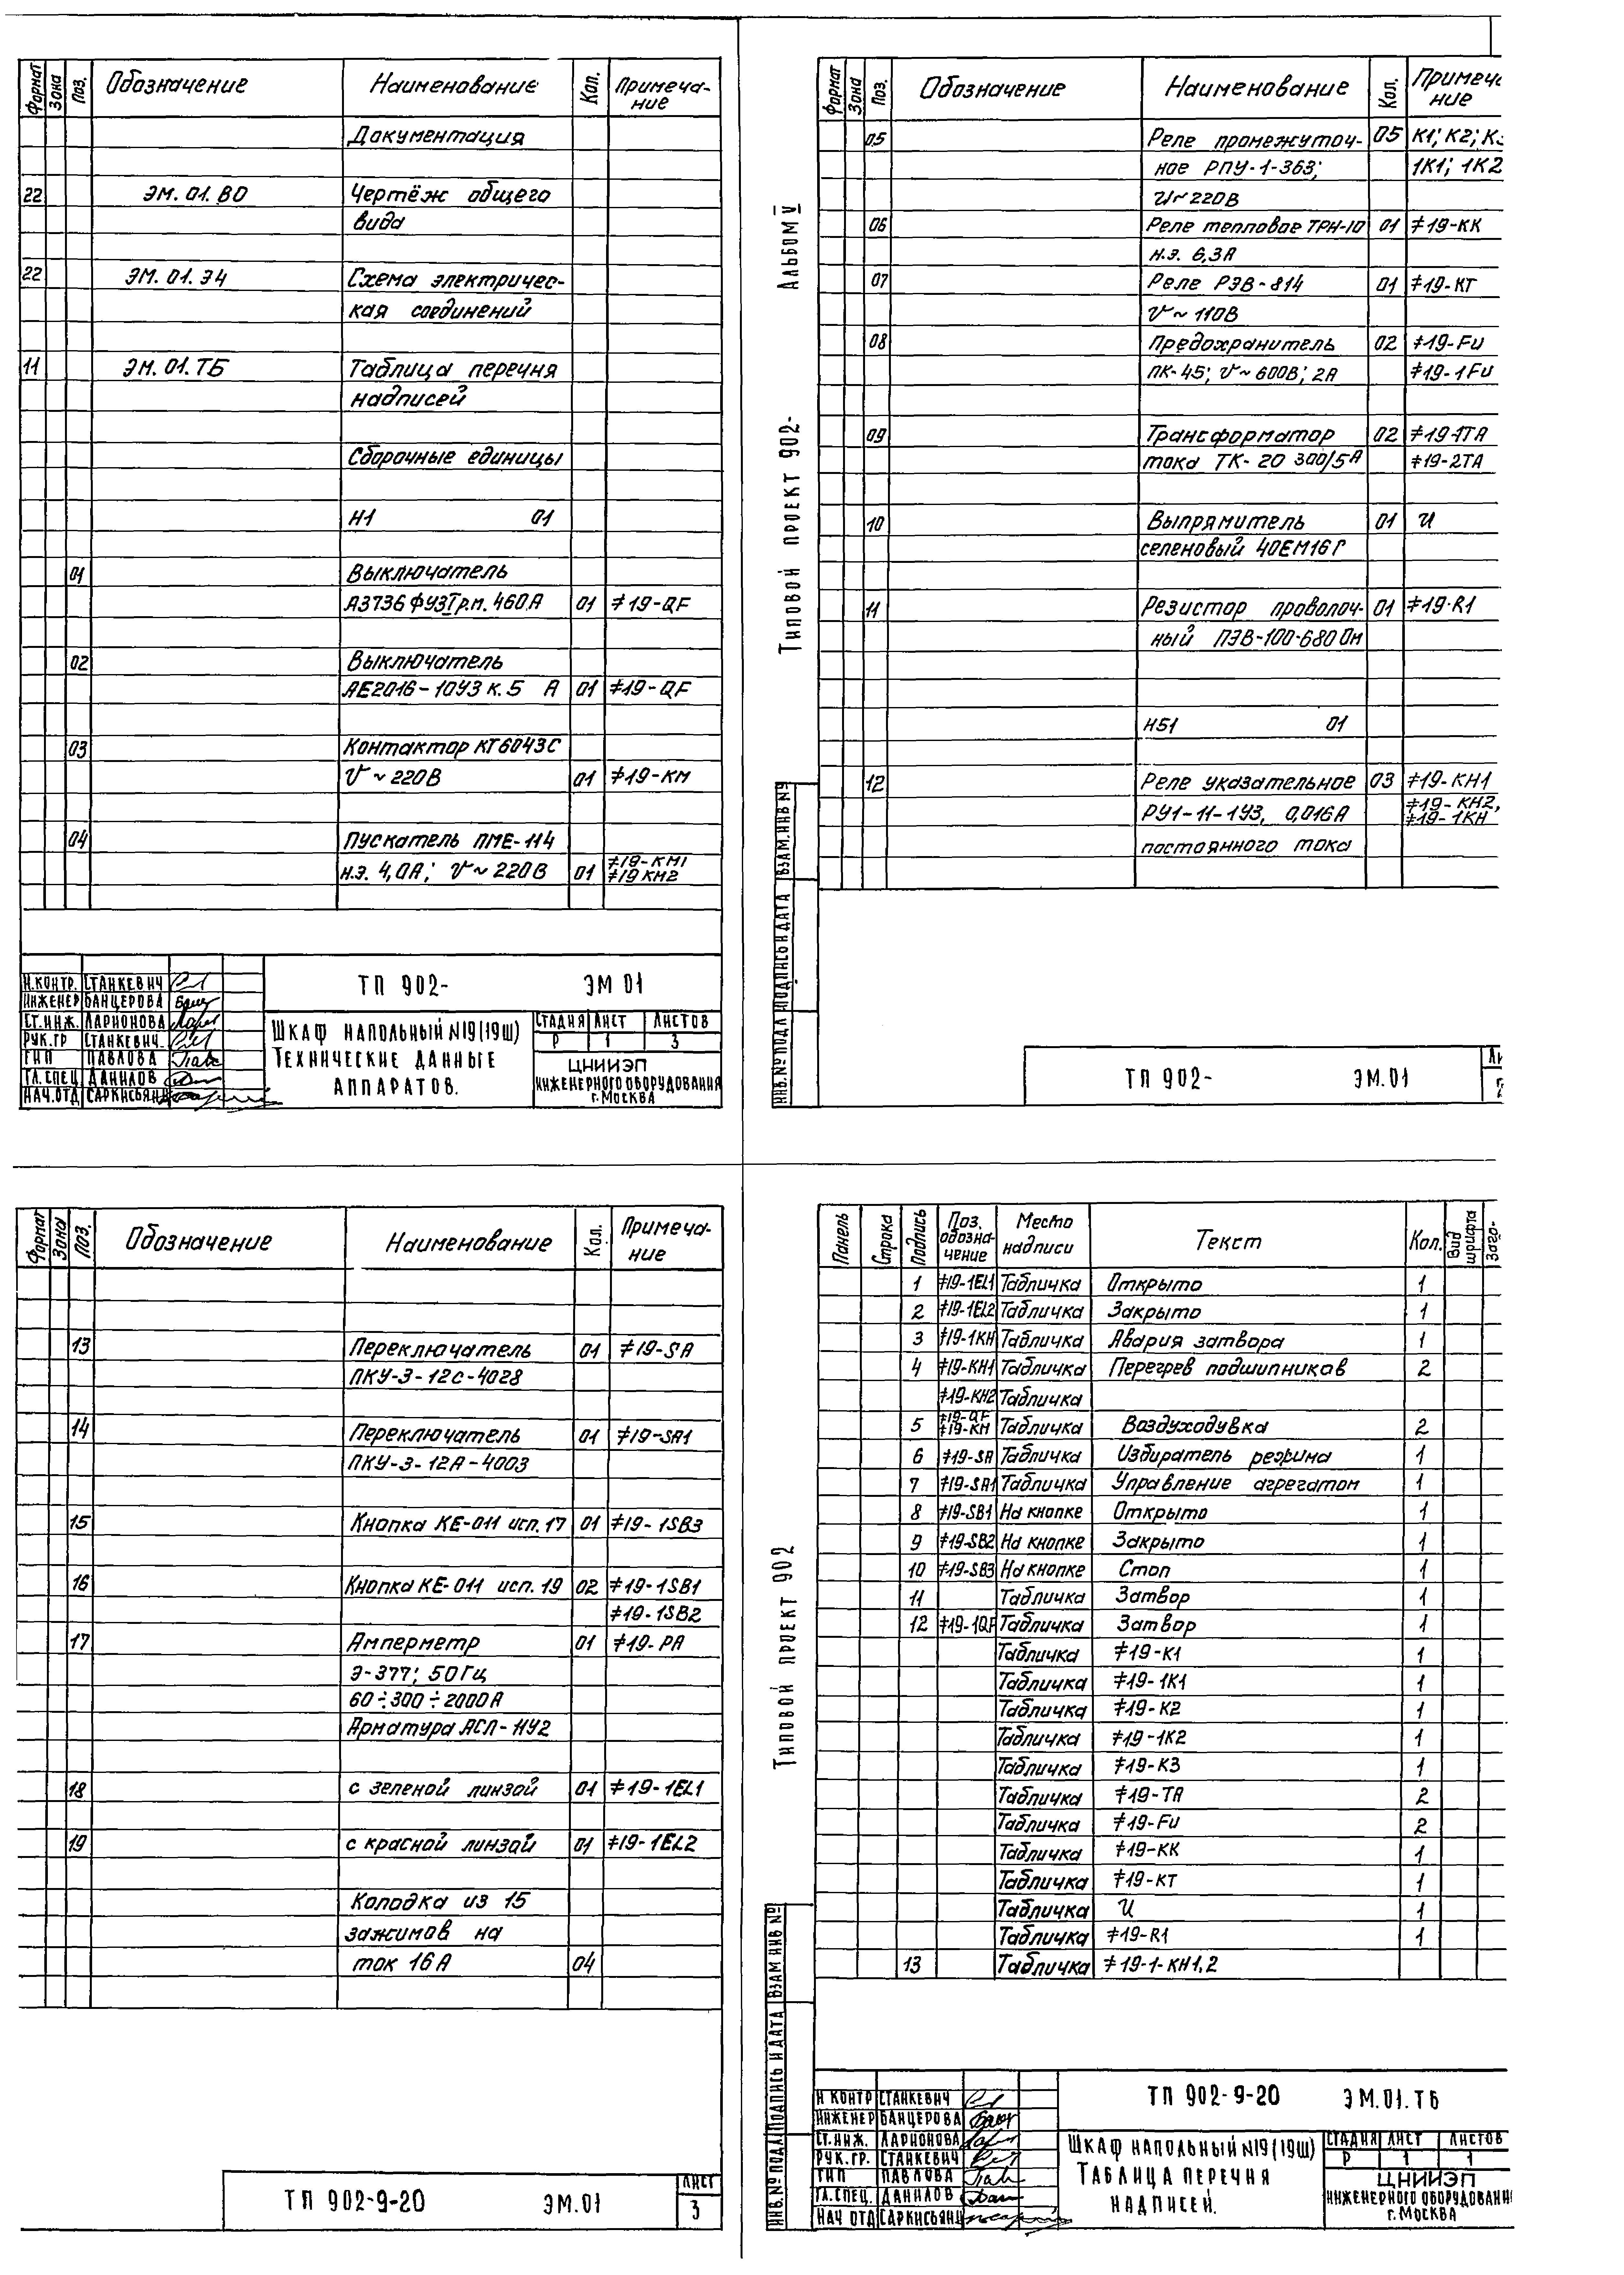 Формат Зона Поз. Обозначение Наименование Кол. Примеча-
ние
Документация
22 ЭМ.01.ВО Чертёж общего
вида
22 ЭМ.01.Э4 Схема электричес-
кая соединений
11 ЭМ.01.ТБ Таблица перечня
надписей
Сборочные единицы
Н1 01
01 Выключатель
А3736ФУ3Тр.м. 460А 01 ≠19-QF
02 Выключатель
АЕ2016-10У3 к.5 А 01 ≠19-QF
03 Контактор КТ6043С
V~220В 01 ≠19-КМ
04 Пускатель ПМЕ-114
н.э. 4,0А; V~220В 01 ≠19-КМ1
≠19 КМ2
Н.КОНТР. СТАНКЕВИЧ
ИНЖЕНЕР БАНЦЕРОВА
СТ.ИНЖ. ЛАРИОНОВА
РУК.ГР СТАНКЕВИЧ
ГИП ПАВЛОВА
ГЛ.СПЕЦ ДАНИЛОВ
НАЧ.ОТД САРКИСЬЯНЦ
ТП 902- ЭМ 01
ШКАФ НАПОЛЬНЫЙ №19(19Ш)
ТЕХНИЧЕСКИЕ ДАННЫЕ
АППАРАТОВ.
СТАДИЯ ЛИСТ ЛИСТОВ
Р 1 3
ЦНИИЭП
ИНЖЕНЕРНОГО ОБОРУДОВАНИЯ
г.МОСКВА
ТИПОВОЙ ПРОЕКТ 902- АЛЬБОМ V
Формат Зона Поз. Обозначение Наименование Кол. Примеча
ние
05 Реле промежуточ- 05 К1; К2; К3
ное РПУ-1-363; 1К1; 1К2
U~220В
06 Реле тепловое ТРН-10 01 ≠19-КК
н.э. 6,3А
07 Реле РЭВ-814 01 ≠19-КТ
V~110В
08 Предохранитель 02 ≠19-Fu
ПК-45; V~600В; 2А ≠19-1Fu
09 Трансформатор 02 ≠19-1ТА
тока ТК-20 300/5А ≠19-2ТА
10 Выпрямитель 01 U
селеновый 40ЕМ16Г
11 Резистор проволоч- 01 ≠19-R1
ный ПЭВ-100-680 Ом
Н51 01
12 Реле указательное 03 ≠19-КН1
РУ1-11-1У3, 0,016А ≠19-КН2,
≠19-1КН
постоянного тока
ИНВ.№ ПОДЛ ПОДПИСЬ И ДАТА ВЗАМ.ИНВ №
ТП 902- ЭМ.01
Формат Зона Поз. Обозначение Наименование Кол. Примеча-
ние
13 Переключатель 01 ≠19-SA
ПКУ-3-12С-4028
14 Переключатель 01 ≠19-SA1
ПКУ-3-12А-4003
15 Кнопка КЕ-011 исп.17 01 ≠19-1SB3
16 Кнопка КЕ-011 исп.19 02 ≠19-1SB1
≠19-1SB2
17 Амперметр 01 ≠19-РА
Э-377; 50Гц
60÷300÷2000А
Арматура АСЛ-НУ2
18 с зеленой линзой 01 ≠19-1EL1
19 с красной линзой 01 ≠19-1EL2
Колодка из 15
зажимов на
ток 16А 04
ТП 902-9-20 ЭМ.01 ЛИСТ
3
ТИПОВОЙ ПРОЕКТ 902
Панель Строка Подпись Поз.
обозна-
чение Место
надписи Текст Кол. Вид
шрифта Заго-
1 ≠19-1EL1 Табличка Открыто 1
2 ≠19-1EL2 Табличка Закрыто 1
3 ≠19-1КН Табличка Авария затвора 1
4 ≠19-КН1 Табличка Перегрев подшипников 2
≠19-КН2 Табличка
5 ≠19-QF
≠19-КМ Табличка Воздуходувка 2
6 ≠19-SA Табличка Избиратель режима 1
7 ≠19-SA1 Табличка Управление агрегатом 1
8 ≠19-SB1 На кнопке Открыто 1
9 ≠19-SB2 На кнопке Закрыто 1
10 ≠19-SB3 На кнопке Стоп 1
11 Табличка Затвор 1
12 ≠19-1QF Табличка Затвор 1
Табличка ≠19-К1 1
Табличка ≠19-1К1 1
Табличка ≠19-К2 1
Табличка ≠19-1К2 1
Табличка ≠19-К3 1
Табличка ≠19-ТА 2
Табличка ≠19-Fu 2
Табличка ≠19-КК 1
Табличка ≠19-КТ 1
Табличка U 1
Табличка ≠19-R1 1
13 Табличка ≠19-1-КН1,2
ИНВ.№ ПОДЛ ПОДПИСЬ И ДАТА ВЗАМ ИНВ №
Н КОНТР СТАНКЕВИЧ
ИНЖЕНЕР БАНЦЕРОВА
СТ.ИНЖ. ЛАРИОНОВА
РУК.ГР. СТАНКЕВИЧ
ГИП ПАВЛОВА
ГЛ.СПЕЦ. ДАНИЛОВ
НАЧ ОТД САРКИСЬЯНЦ
ТП 902-9-20 ЭМ.01.ТБ
ШКАФ НАПОЛЬНЫЙ №19(19Ш)
ТАБЛИЦА ПЕРЕЧНЯ
НАДПИСЕЙ.
СТАДИЯ ЛИСТ ЛИСТОВ
Р 1 1
ЦНИИЭП
ИНЖЕНЕРНОГО ОБОРУДОВАНИ
г.МОСКВА